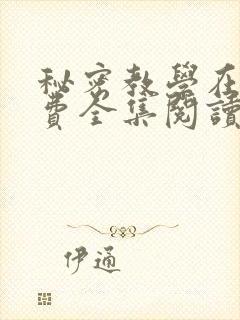 秘密教學在
費全集閱讀
伊通